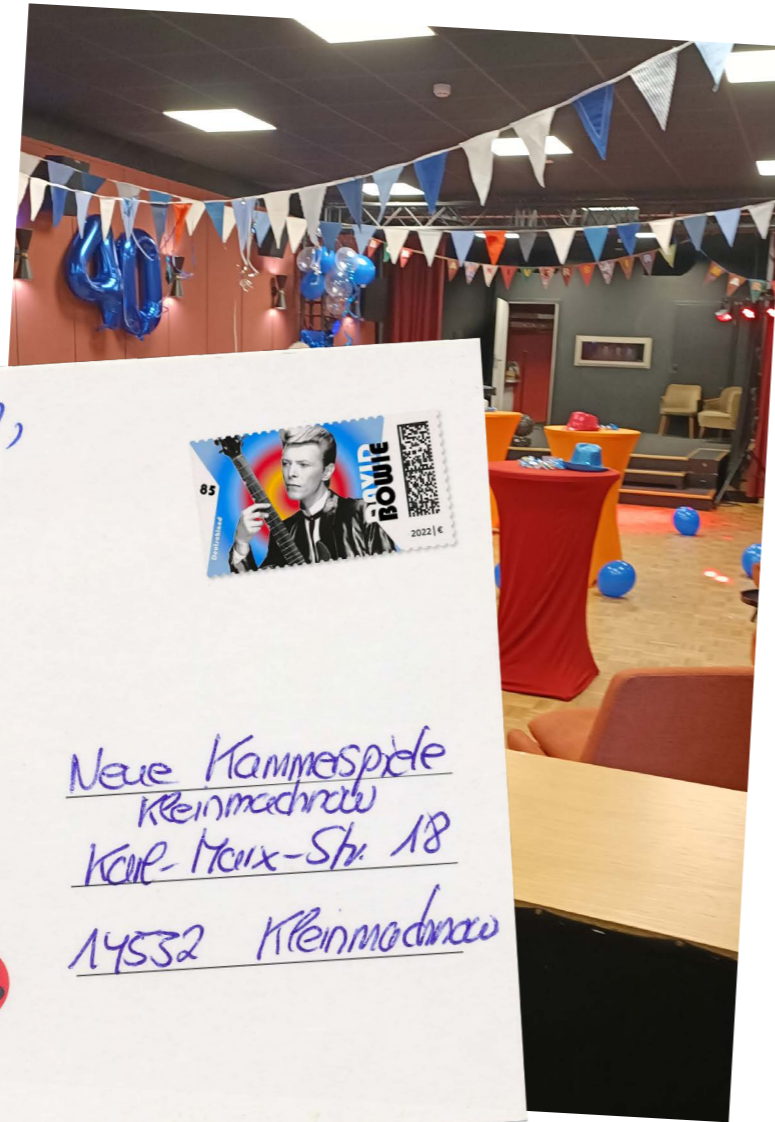 40
85
Deutschland
DAVID
BOWIE
2022 | €
Neue Kammerspiele
Kleinmachnow
Karl-Marx-Str. 18
14532 Kleinmachnow